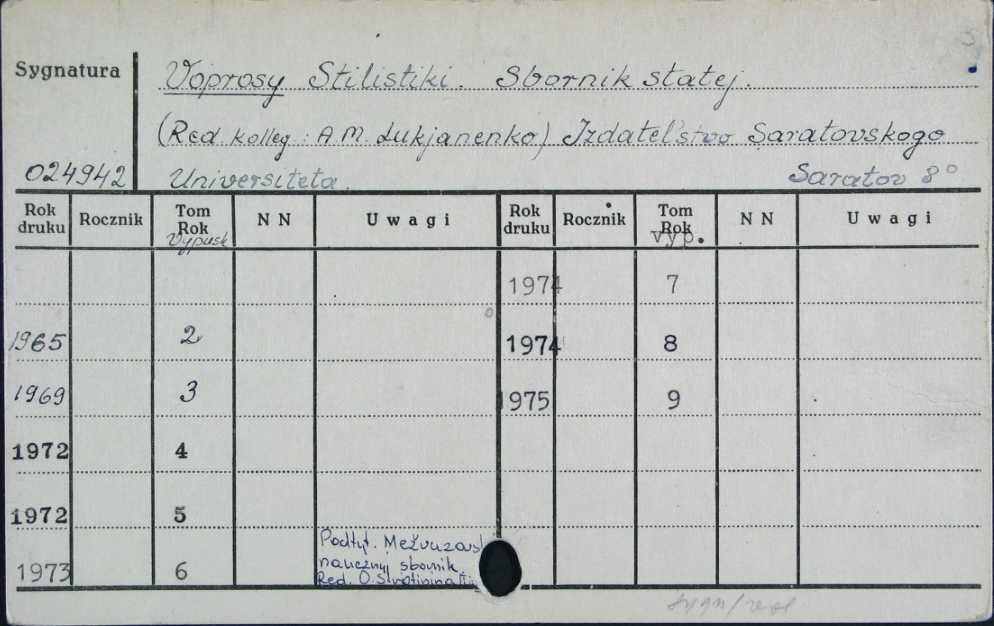 Sygnatura
Voprosy Stilistiki. Sbornik statej.
(Red. kolleg: A.M. Lukjanenko) Izdatel'stvo Saratovskogo
024942 Universiteta. Saratov 8°
Rok druku Rocznik Tom Rok Vypusk N N Uwagi Rok druku Rocznik Tom Rok vyp. N N Uwagi
1974 7
1965 2 1974 8
1969 3 1975 9
1972 4
1972 5
1973 6
Podtyt. Mežvuzovsk
naucznyj sbornik
Red. O.